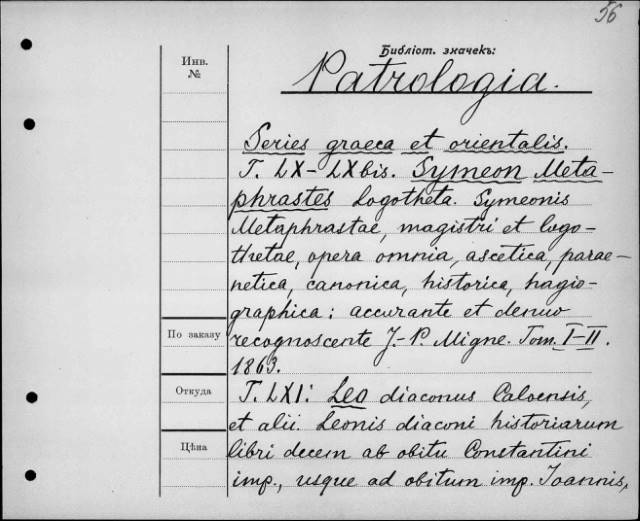 56
Библіот. значекъ:
Инв.
№
Patrologia.
Series graeca et orientalis.
T. LX-LXbis. Symeon Meta-
phrastes Logotheta. Symeonis
Metaphrastae, magistri et logo-
thetae, opera omnia, ascetica, parae-
netica, canonica, historica, hagio-
graphica: accurante et denuo
По заказу
recognoscente J.-P. Migne. Tom. I-II.
1863.
Откуда
T. LXI: Leo diaconus Caloensis,
et alii. Leonis diaconi historiarum
Цѣна
libri decem ab obitu Constantini
imp., usque ad obitum imp. Ioannis,